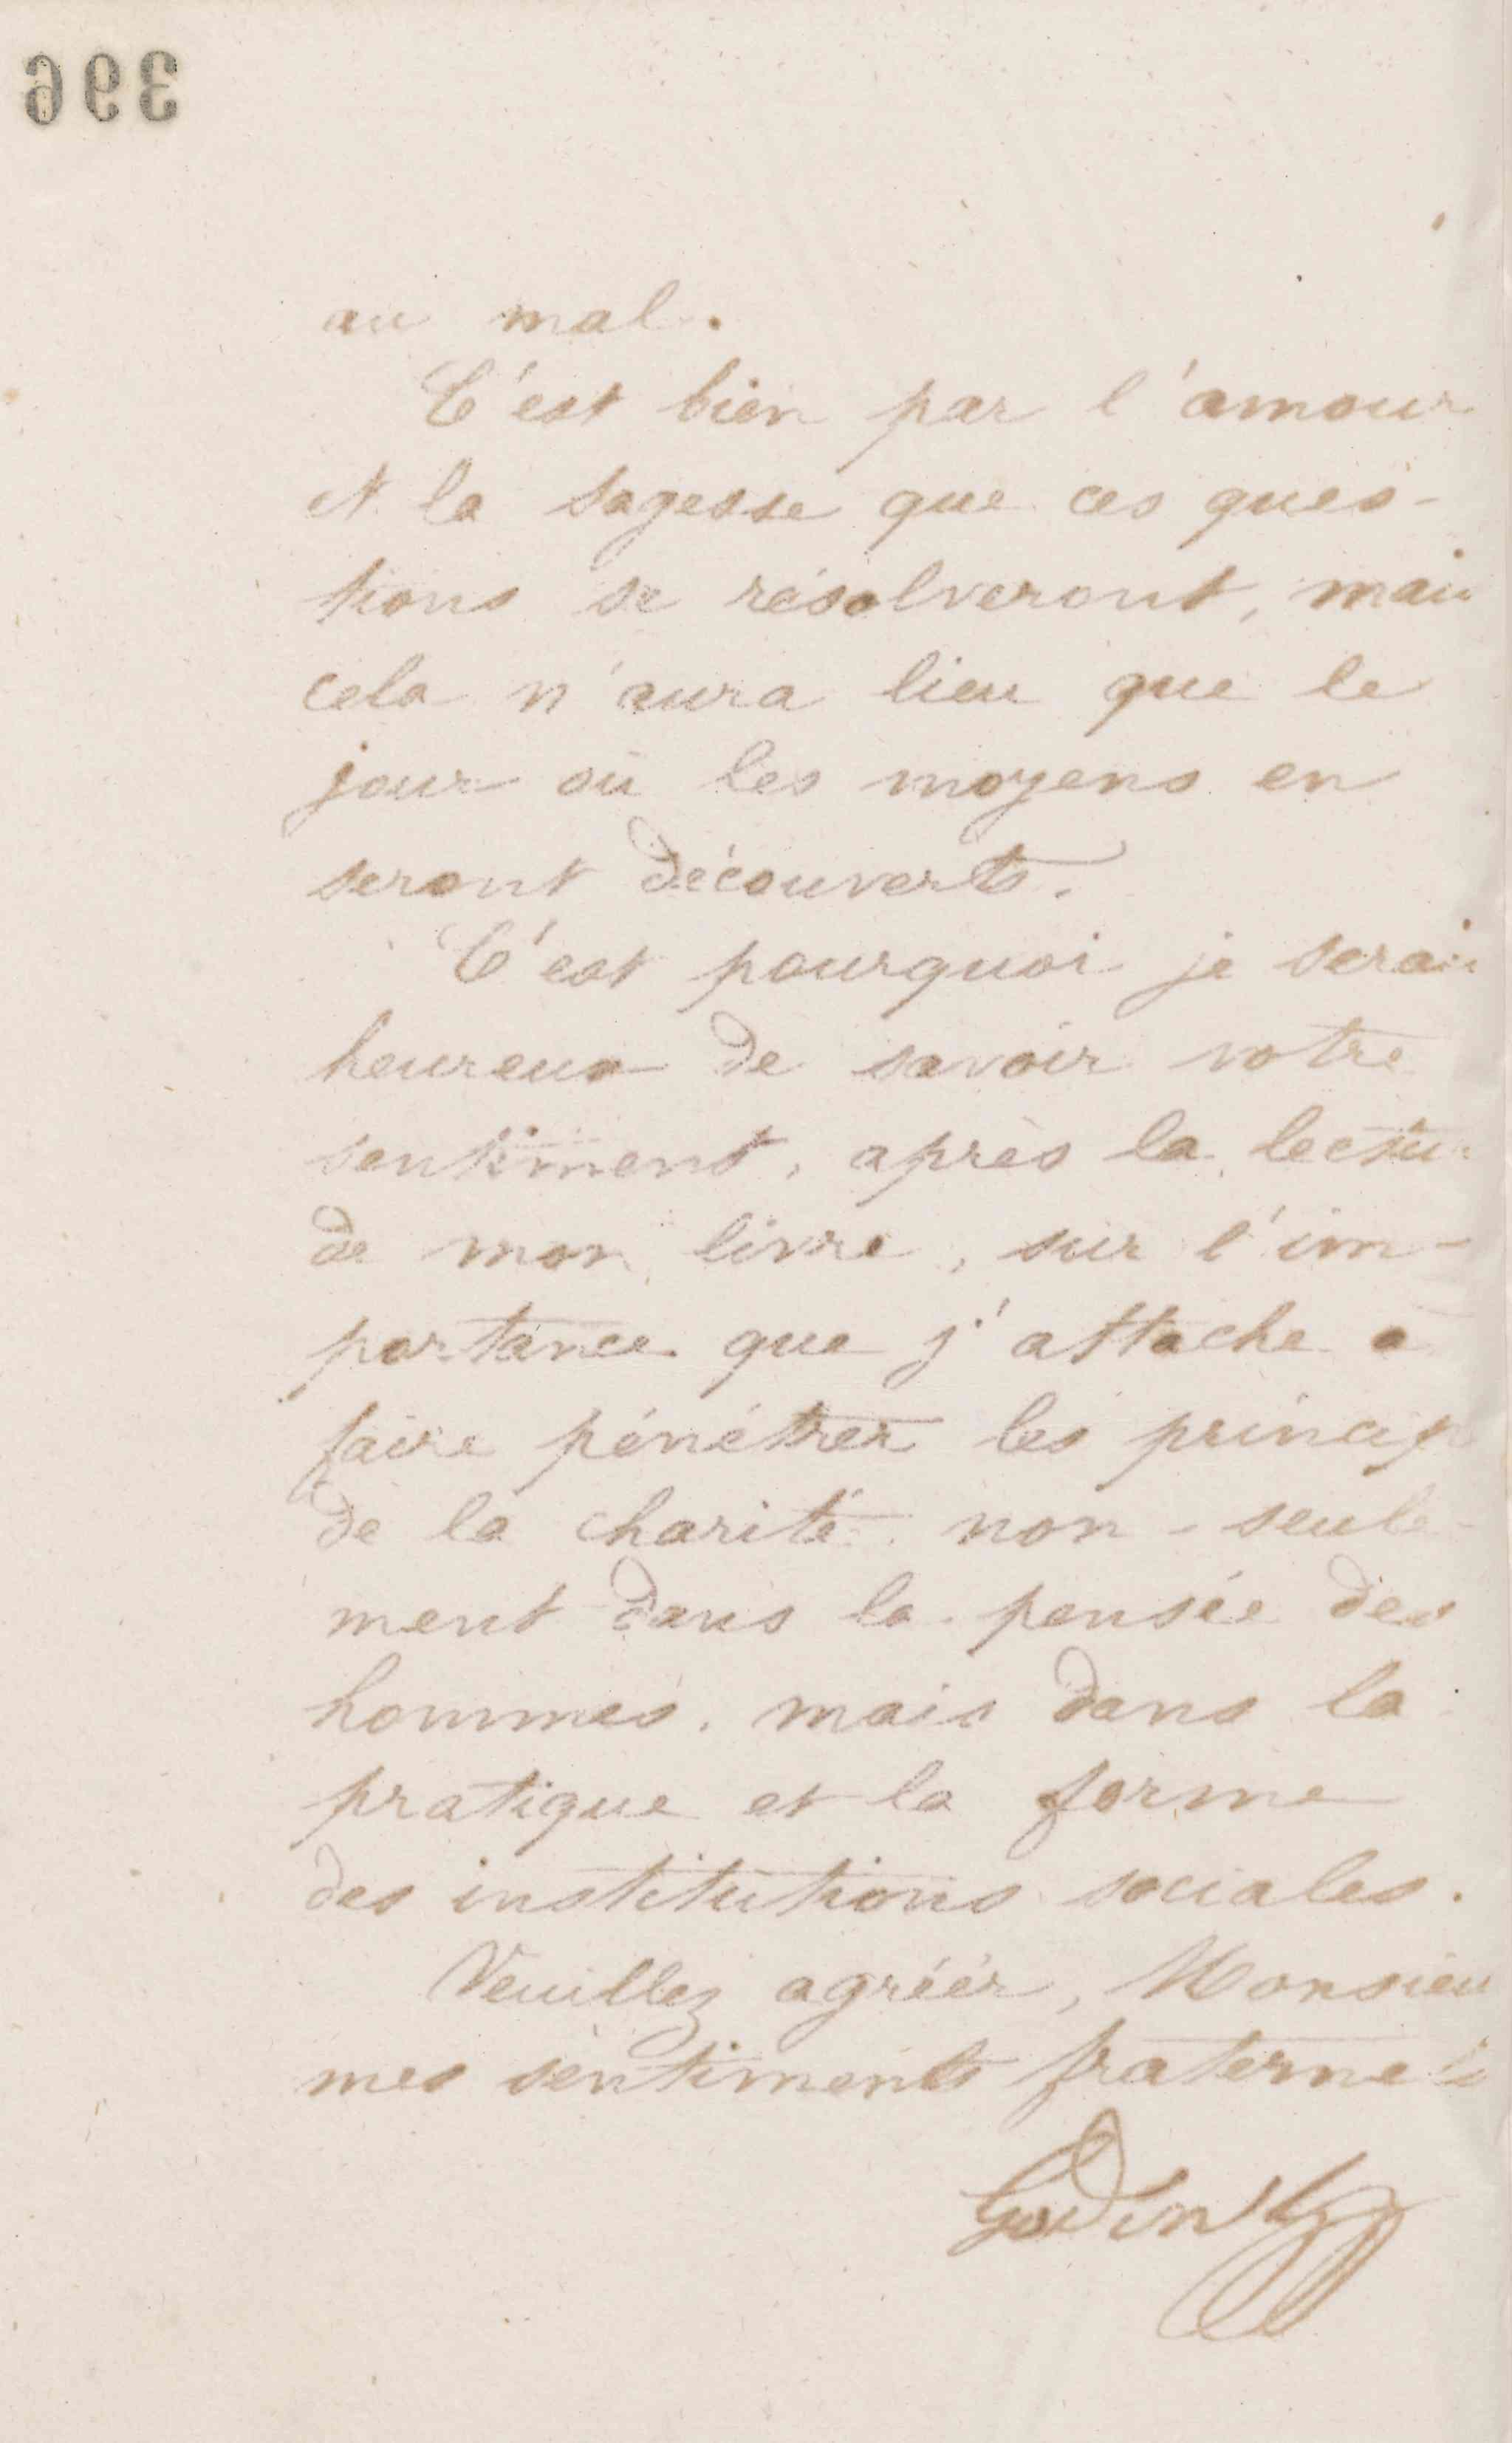 396
au mal.
C'est bien par l'amour
et la sagesse que ces ques-
tions se résolveront, mais
cela n'aura lieu que le
jour où les moyens en
seront découverts.
C'est pourquoi je serais
heureux de savoir votre
sentiment, après la lectu
de mon livre, sur l'im-
portance que j'attache à
faire pénétrer les princip
de la charité non-seule-
ment dans la pensée des
hommes, mais dans la
pratique et la forme
des institutions sociales.
Veuillez agréer, Monsieu
mes sentiments fraternels
Godin